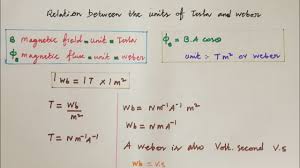 Relation between the units of Tesla and weber
B magnetic field = unit = Tesla
ϕB magnetic flux = unit = weber
ϕB = B.A cosθ
unit :- Tm² or weber
1 Wb = 1T × 1m²
T = Wb/m²
T = N m⁻¹A⁻¹
Wb = N m⁻¹A⁻¹ m²
Wb = N m A⁻¹
A weber is also Volt. second V.s
Wb = V.s